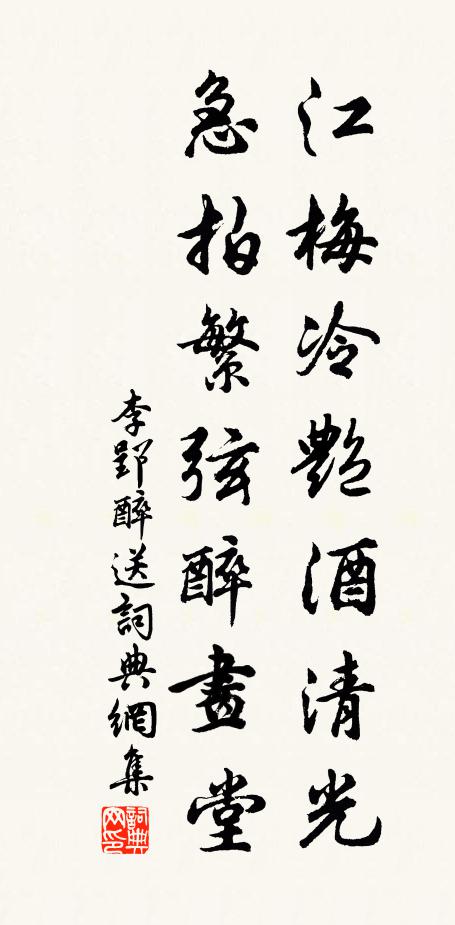 江梅冷艷酒清光
急拍繁弦醉畫堂
李郢醉送詞典網集
詞典网印